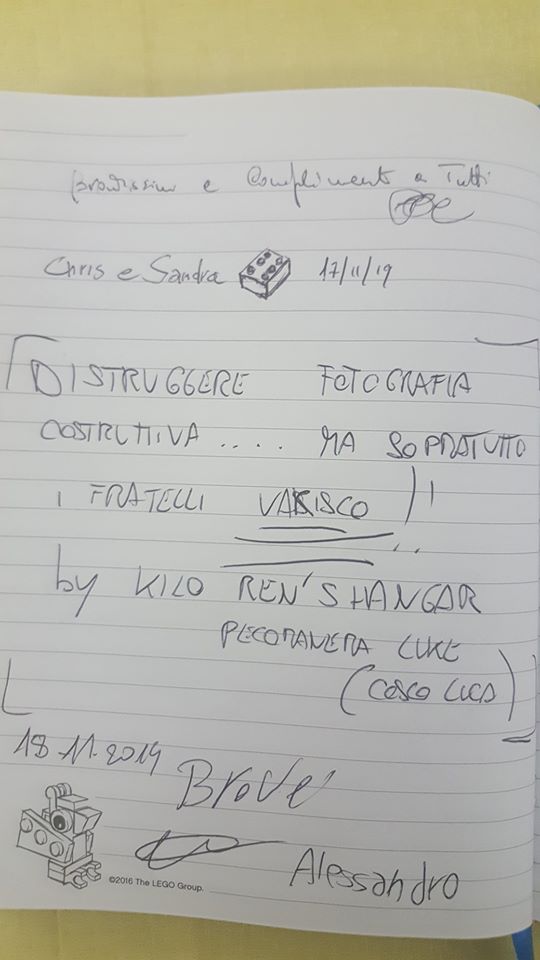 Bravissimi e Complimenti a Tutti
Chris e Sandra 17/11/19
DISTRUGGERE FOTOGRAFIA
COSTRUTTIVA .... MA SOPRATUTTO
I FRATELLI VARISCO !!
by KILO REN'S HANGAR
PECORANERA LUKE
(COSCO LUCA)
18.11.2019
©2016 The LEGO Group.
Alessandro